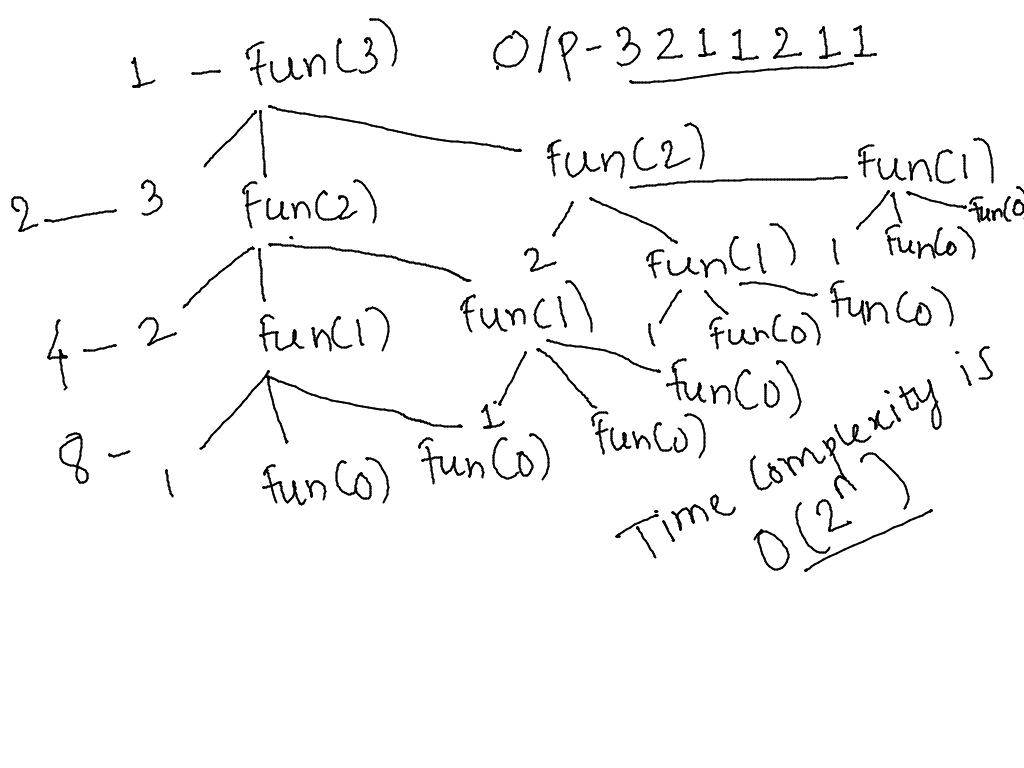 1 - Fun(3) O/P - 3 2 1 1 2 1 1
Fun(2) Fun(1)
2 - 3 Fun(2) Fun(0)
2 Fun(1) 1 Fun(0)
4 - 2 fun(1) Fun(1) 1 Fun(0) Fun(0)
1 Fun(0)
8 - 1 fun(0) Fun(0) Fun(0)
Time Complexity is
O(2ⁿ)